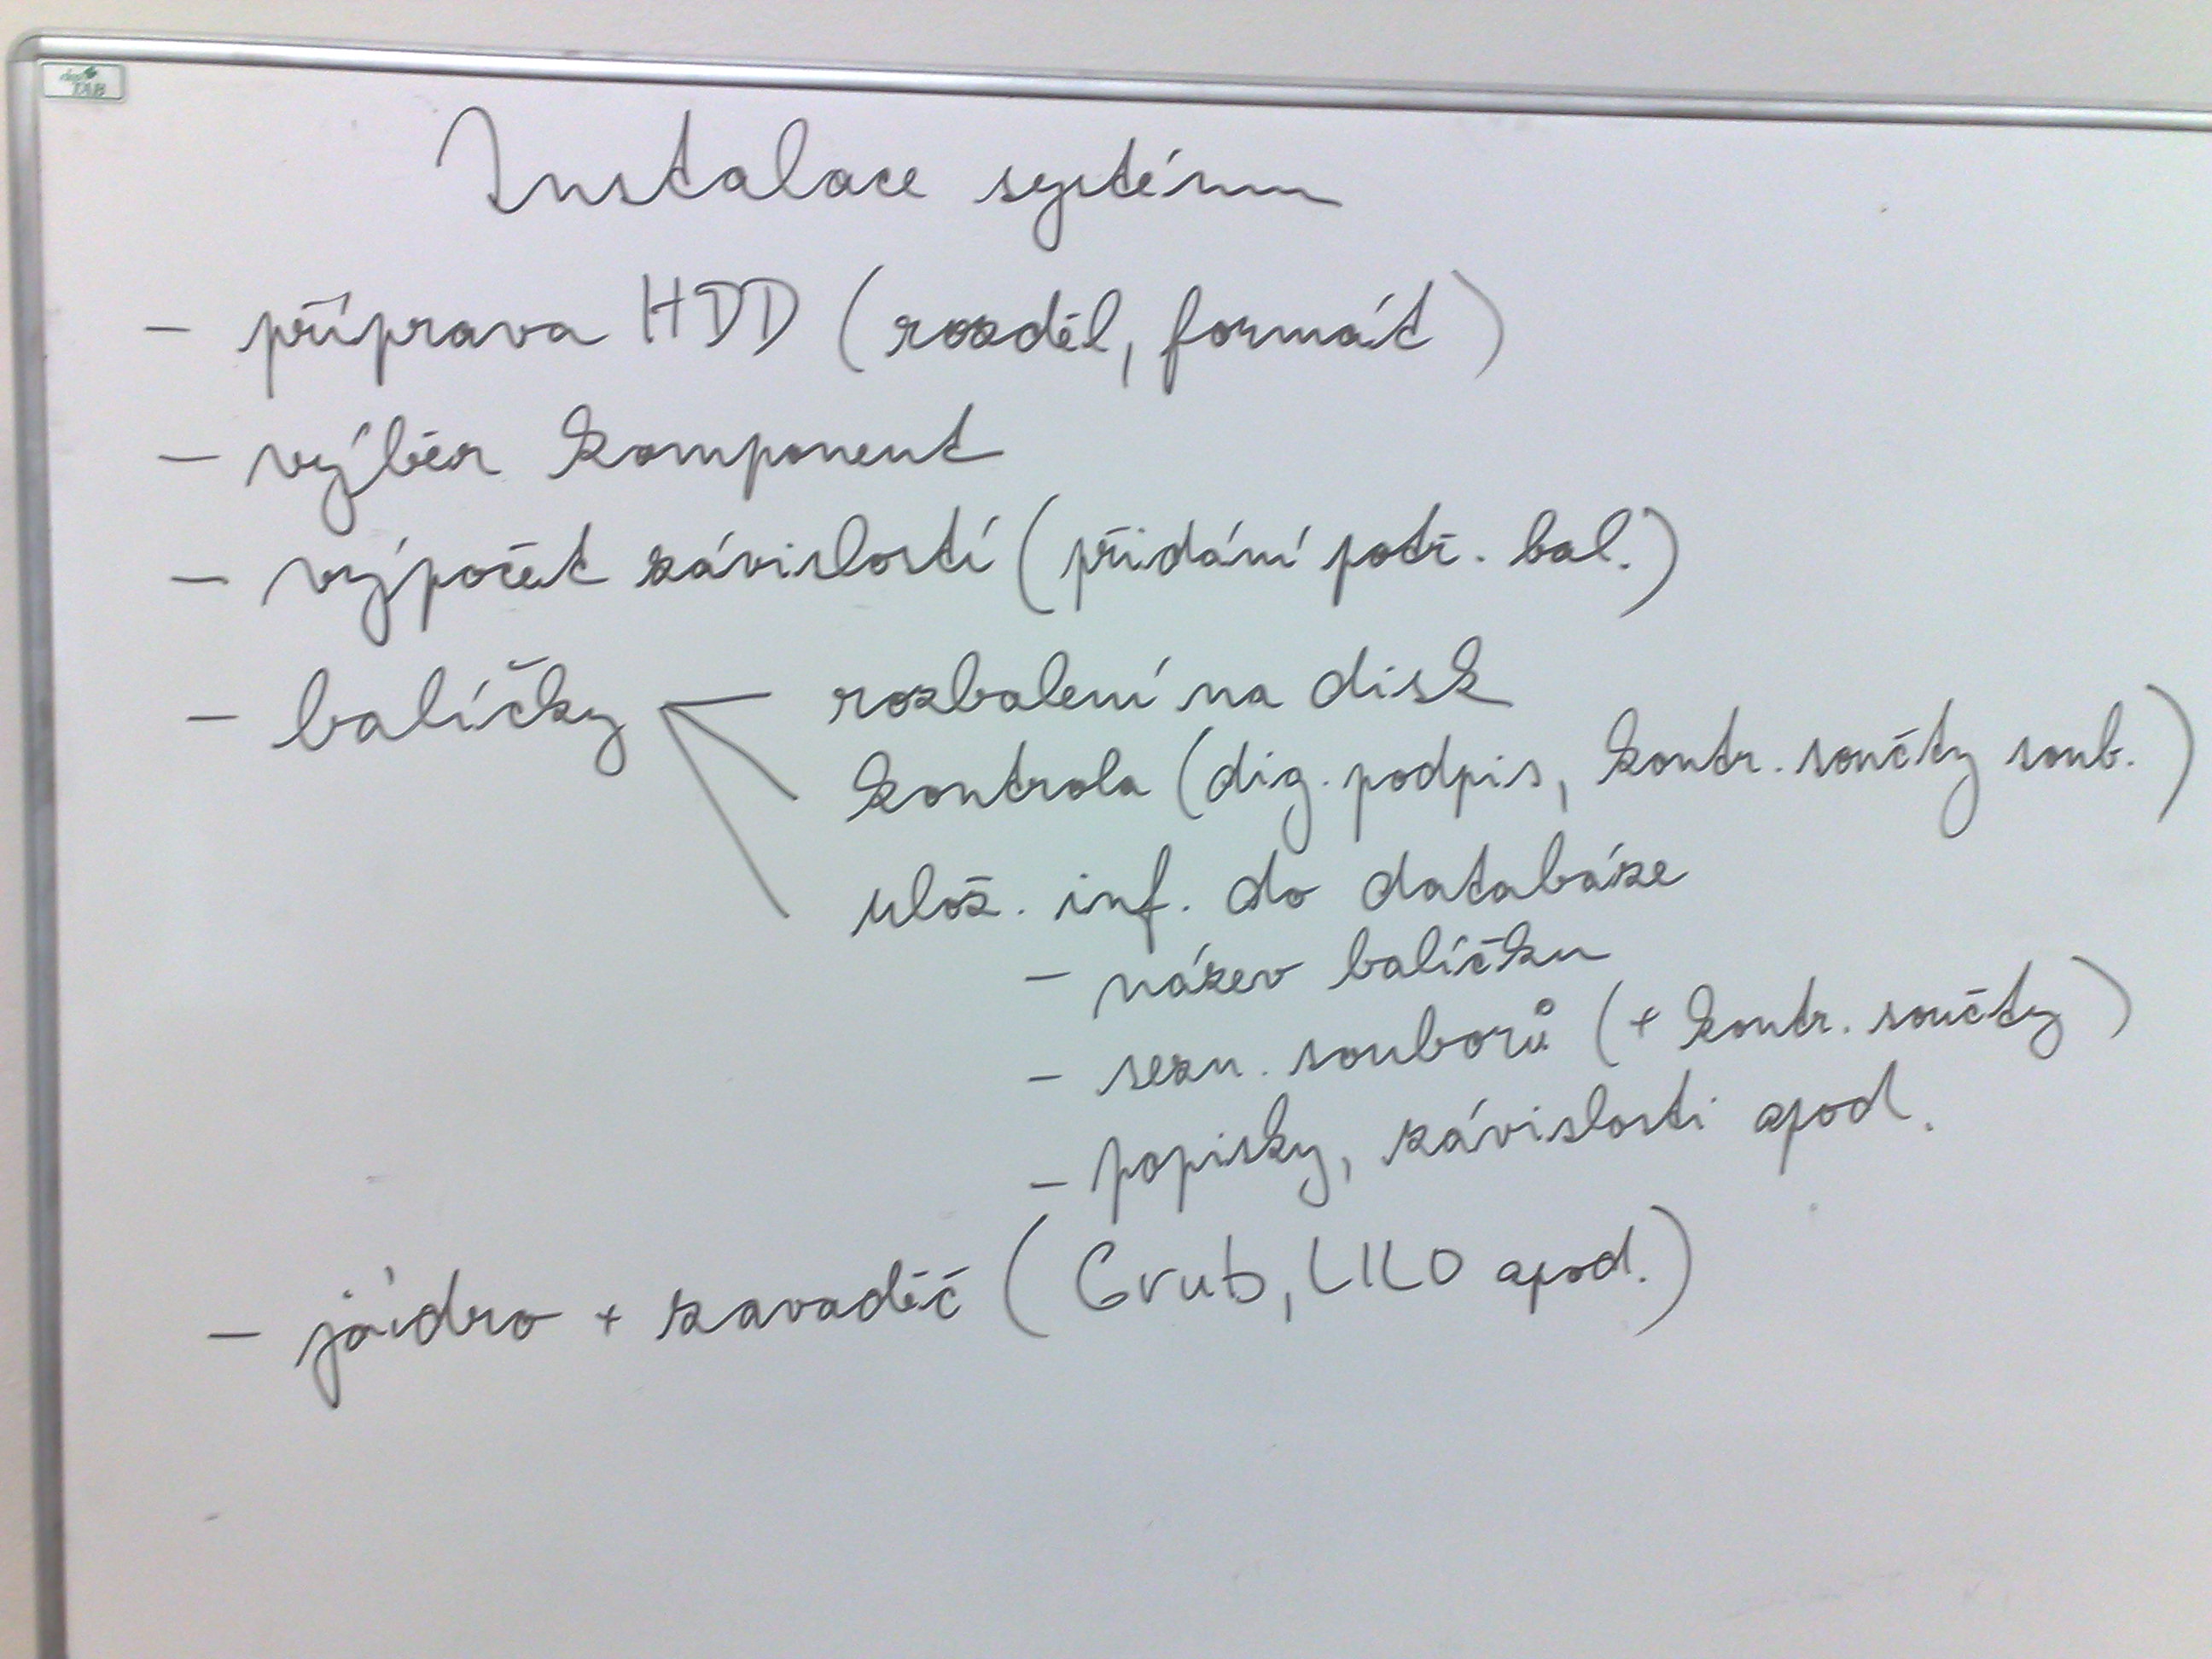 TAB
Instalace systému
- příprava HDD (rozděl, formát)
- výběr komponent
- výpočet závislostí (přidání potř. bal.)
- balíčky rozbalení na disk
kontrola (dig. podpis, kontr. součty soub.)
ulož. inf. do databáze
- název balíčku
- sezn. souborů (+ kontr. součty)
- popisky, závislosti apod.
- jádro + zavaděč (Grub, LILO apod.)